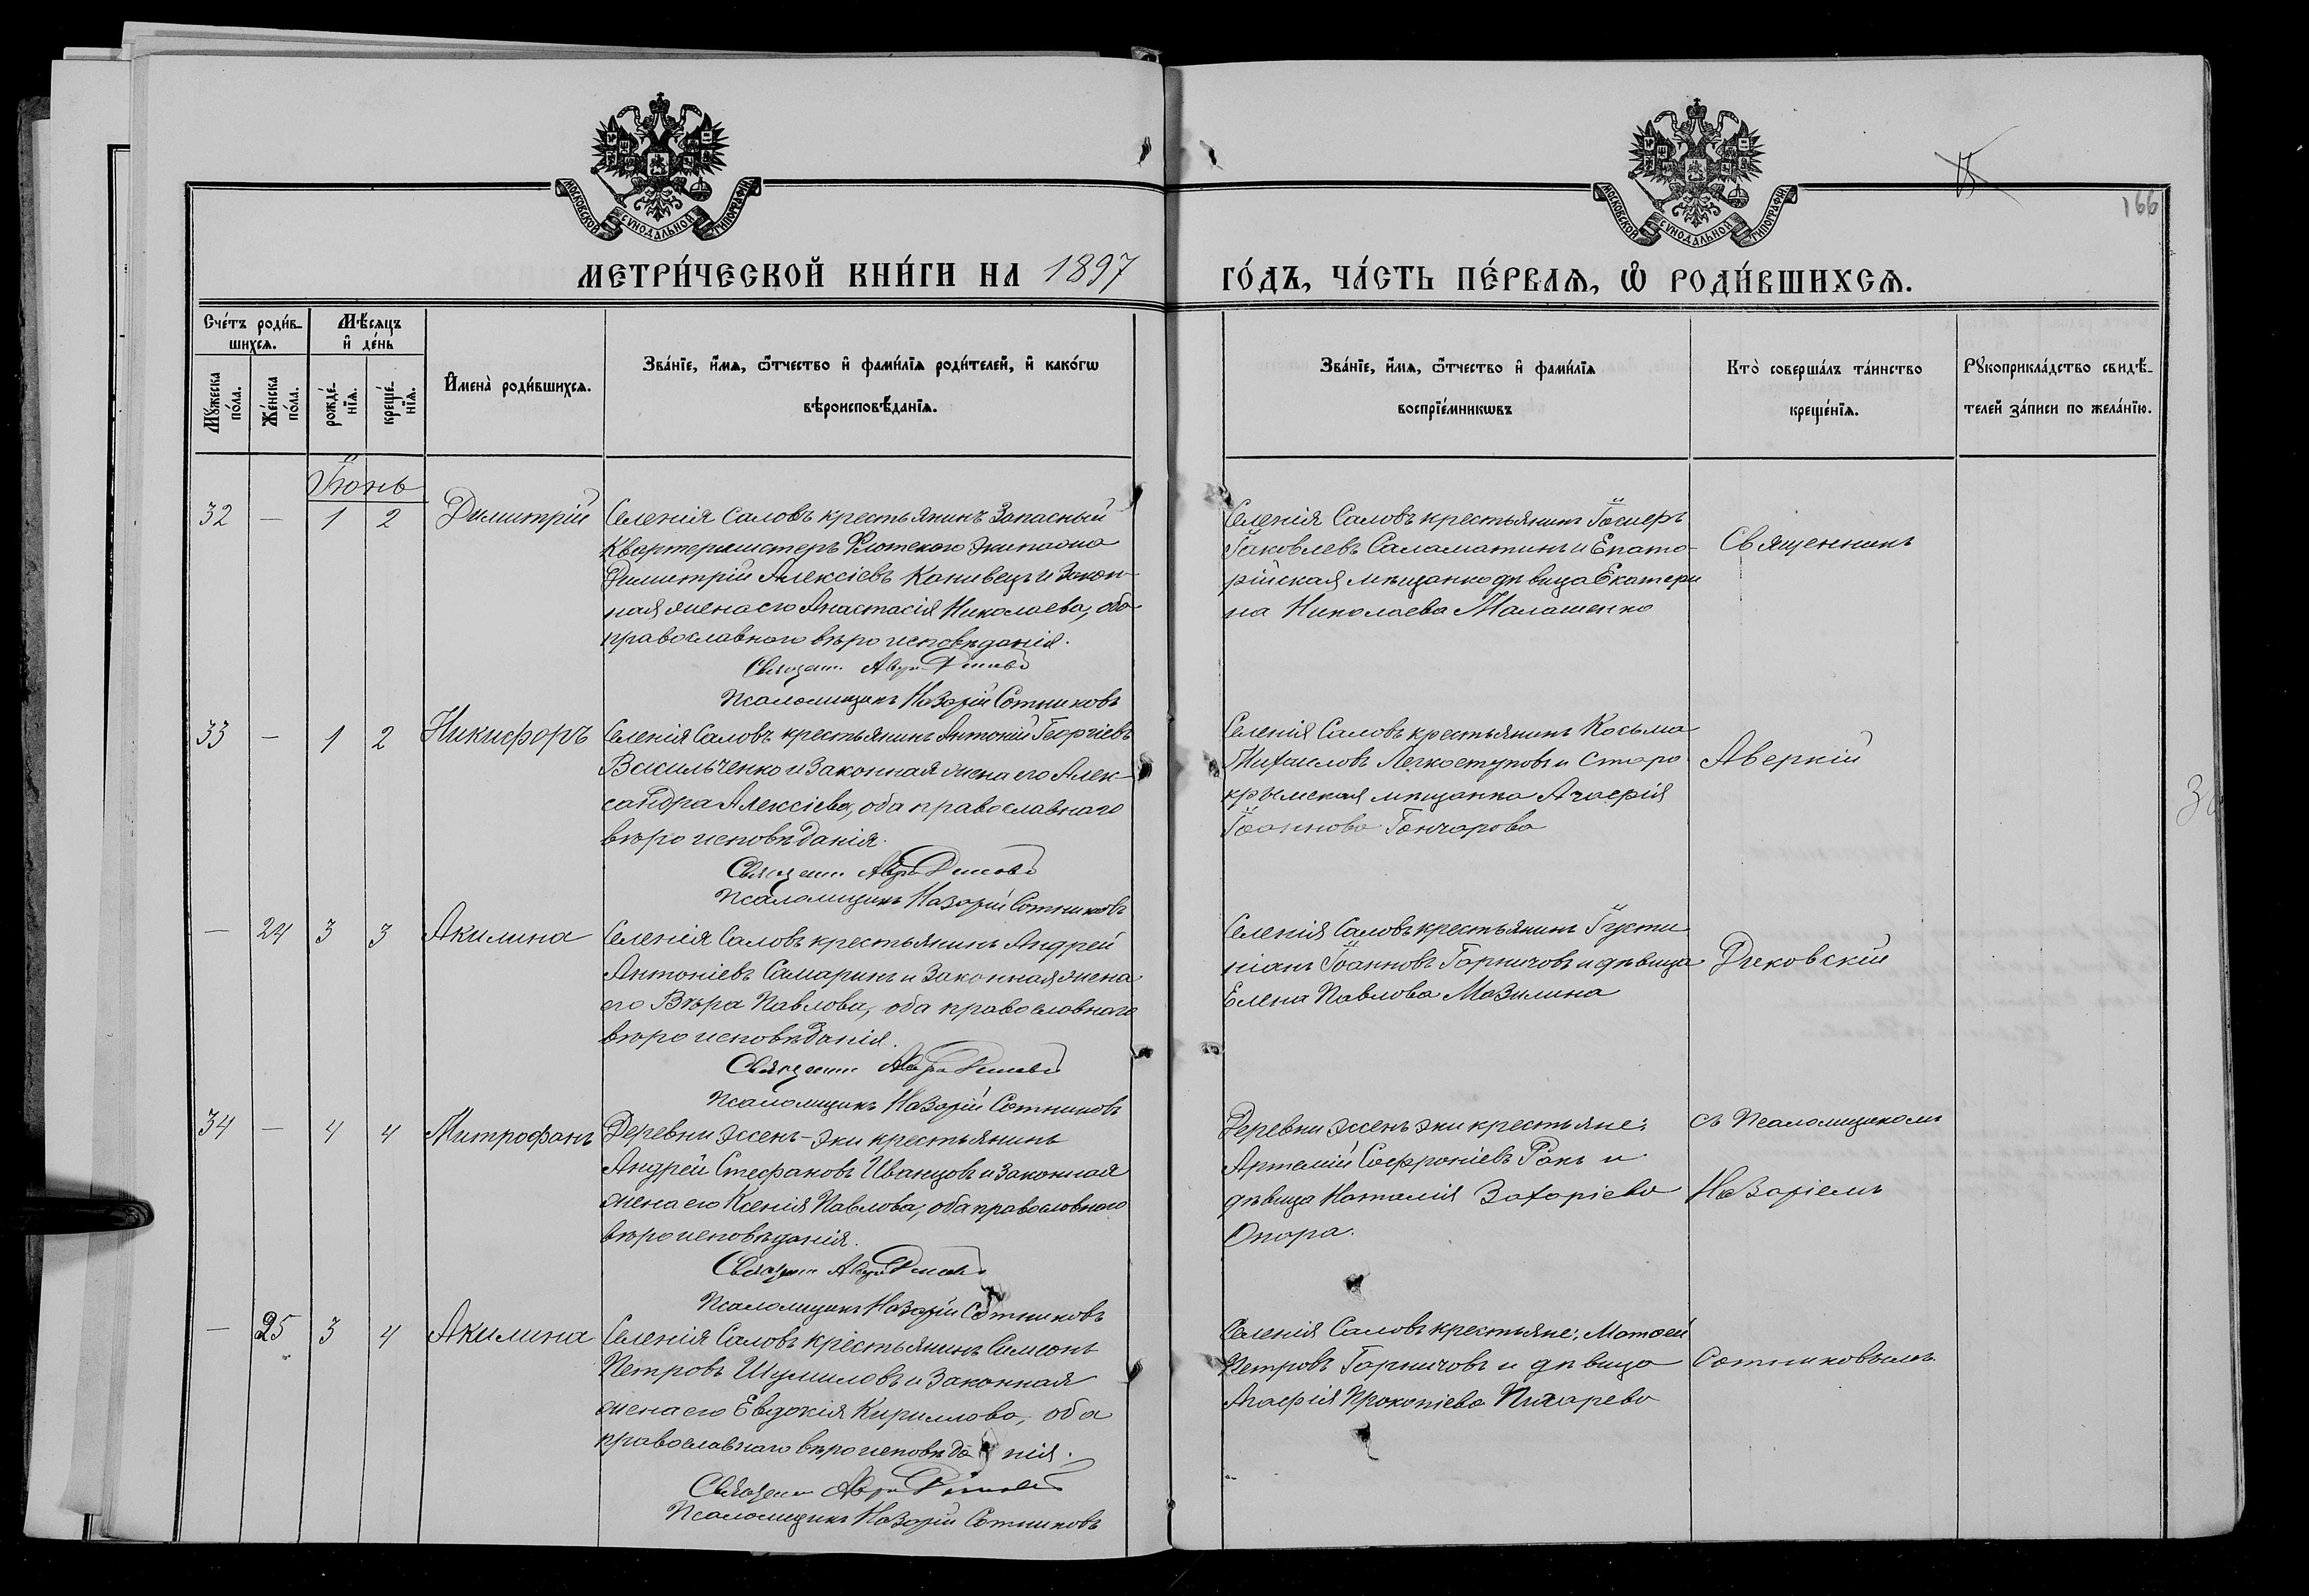 МОСКОВСКОЙ СУНОДАЛЬНОЙ ТИПОГРАФІИ
МОСКОВСКОЙ СУНОДАЛЬНОЙ ТИПОГРАФІИ
166
МЕТРИ́ЧЕСКОЙ КНИ́ГИ НА 1897
ГО́ДЪ, ЧА́СТЬ ПЕ́РВАѦ, Ѡ҆ РОДИ́ВШИХСѦ.
Сче́тъ роди́в-
шихсѧ.
Мꙋ́жеска по́ла.
Же́нска по́ла.
Мѣ́сяцъ
и҆ де́нь
рожде́нїѧ.
креще́нїѧ.
И҆мена̀ роди́вшихсѧ.
Зва́нїе, и҆́мѧ, ѻ҆́тчество и҆ фами́лїѧ роди́телей, и҆ како́гѡ
вѣроисповѣ́данїѧ.
Зва́нїе, и҆́мѧ, ѻ҆́тчество и҆ фами́лїѧ
воспрїе́мникѡвъ
Кто̀ соверша́лъ та́инство
креще́нїѧ.
Рꙋкоприкла́дство свидѣ́-
телей за́писи по жела́нїю.
Іюнь
32 — 1 2 Димитрій
Селенія Саловъ крестьянинъ Запасный
Квартермистеръ Флотскаго экипажа
Димитрій Алексіевъ Канивецъ и Закон-
ная жена его Анастасія Николаева, оба
православнаго вѣроисповѣданія.
Священ.
Псаломщикъ Назарій Сотниковъ
Селенія Саловъ крестьянинъ
Іаковлевъ Саламатинъ и Евпато-
рійская мѣщанка дѣвица Екатери
на Николаева Малашенко
Священникъ
33 — 1 2 Никифоръ
Селенія Саловъ крестьянинъ Антоній Георгіевъ
Васильченко и Законная жена его Алек-
сандра Алексіева, оба православнаго
вѣроисповѣданія.
Священ.
Псаломщикъ Назарій Сотниковъ
Селенія Саловъ крестьянинъ Косьма
Михаиловъ Легкоступовъ и Старо
крымская мѣщанка Агафія
Іоаннова Гончарова
Аверкій
— 24 3 3 Акилина
Селенія Саловъ крестьянинъ Андрей
Антоніевъ Самаринъ и Законная жена
его Вѣра Павлова, оба православнаго
вѣроисповѣданія.
Священ.
Псаломщикъ Назарій Сотниковъ
Селенія Саловъ крестьянинъ Іусти
ніанъ Іоанновъ Горничовъ и дѣвица
Елена Павлова Мазилина
34 — 4 4 Митрофанъ
Деревни Эссенъ-Эки крестьянинъ
Андрей Стефановъ Иванцовъ и Законная
жена его Ксенія Павлова, оба православнаго
вѣроисповѣданія.
Священ.
Псаломщикъ Назарій Сотниковъ
Деревни Эссенъ Эки крестьяне:
Артемій Софроніевъ Ракъ и
дѣвица Наталія Захаріева
Опара.
съ Псаломщикомъ
Назаріемъ
— 25 3 4 Акилина
Селенія Саловъ крестьянинъ Симеонъ
Петровъ Шумиловъ и Законная
жена его Евдокія Кириллова, оба
православнаго вѣроисповѣданія.
Священ.
Псаломщикъ Назарій Сотниковъ
Селенія Саловъ крестьяне: Матѳей
Петровъ Горничовъ и дѣвица
Агафія Прокопіева Пихарева
Сотниковымъ.